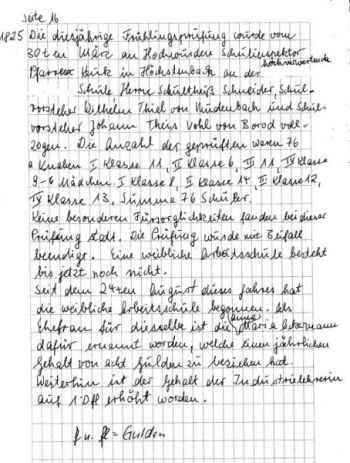 Seite 16
1825 Die diesjährige Frühlingsprüfung wurde vom
30ten März an Hochwürden Schulinspektor
Pfarrer Huck in Höchstenbach an der hochverwertende
Schule Herrn Schultheiß Schneider, Schul-
vorsteher Wilhelm Thiel von Mudenbach und Schul-
vorsteher Johann Theis Vohl von Borod voll-
zogen. Die Anzahl der geprüften waren 76
a Knaben I Klasse 11, II Klasse 6, III 11, IV Klasse
9-6 Mädchen. I Klasse 8, II Klasse 14, III Klasse 12,
IV Klasse 13, Summe 76 Schüler.
Keine besonderen Fürsorglichkeiten fanden bei dieser
Prüfung statt. Die Prüfung wurde mit Beifall
beendigt. Eine weibliche Arbeitsschule besteht
bis jetzt noch nicht.
Seit dem 24ten August dieses Jahres hat
die weibliche Arbeitsschule begonnen. Als
Ehefrau für dieselbe ist die (Anna) Maria Ackermann
dafür ernannt worden, welche einen jährlichen
Gehalt von acht Gulden zu beziehen hat.
Weiterhin ist der Gehalt der Industrielehrerin
auf 1 Dfl erhöht worden.
f u. fl = Gulden